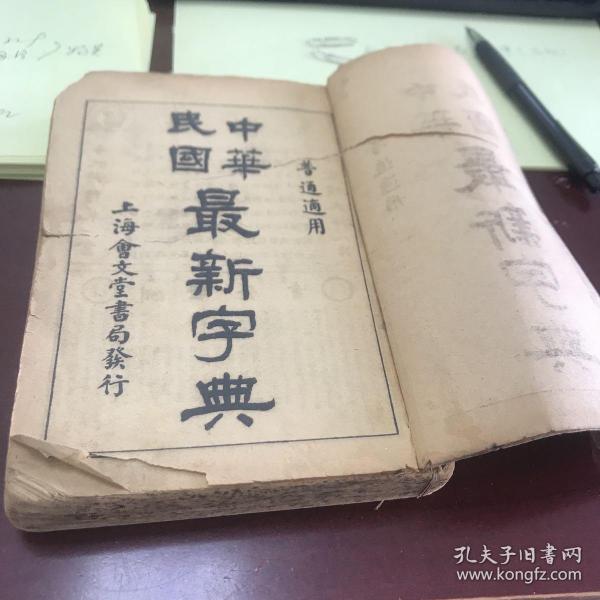 普通適用
中華
民國
最新字典
上海會文堂書局發行
孔夫子旧书网
www.kongfz.com